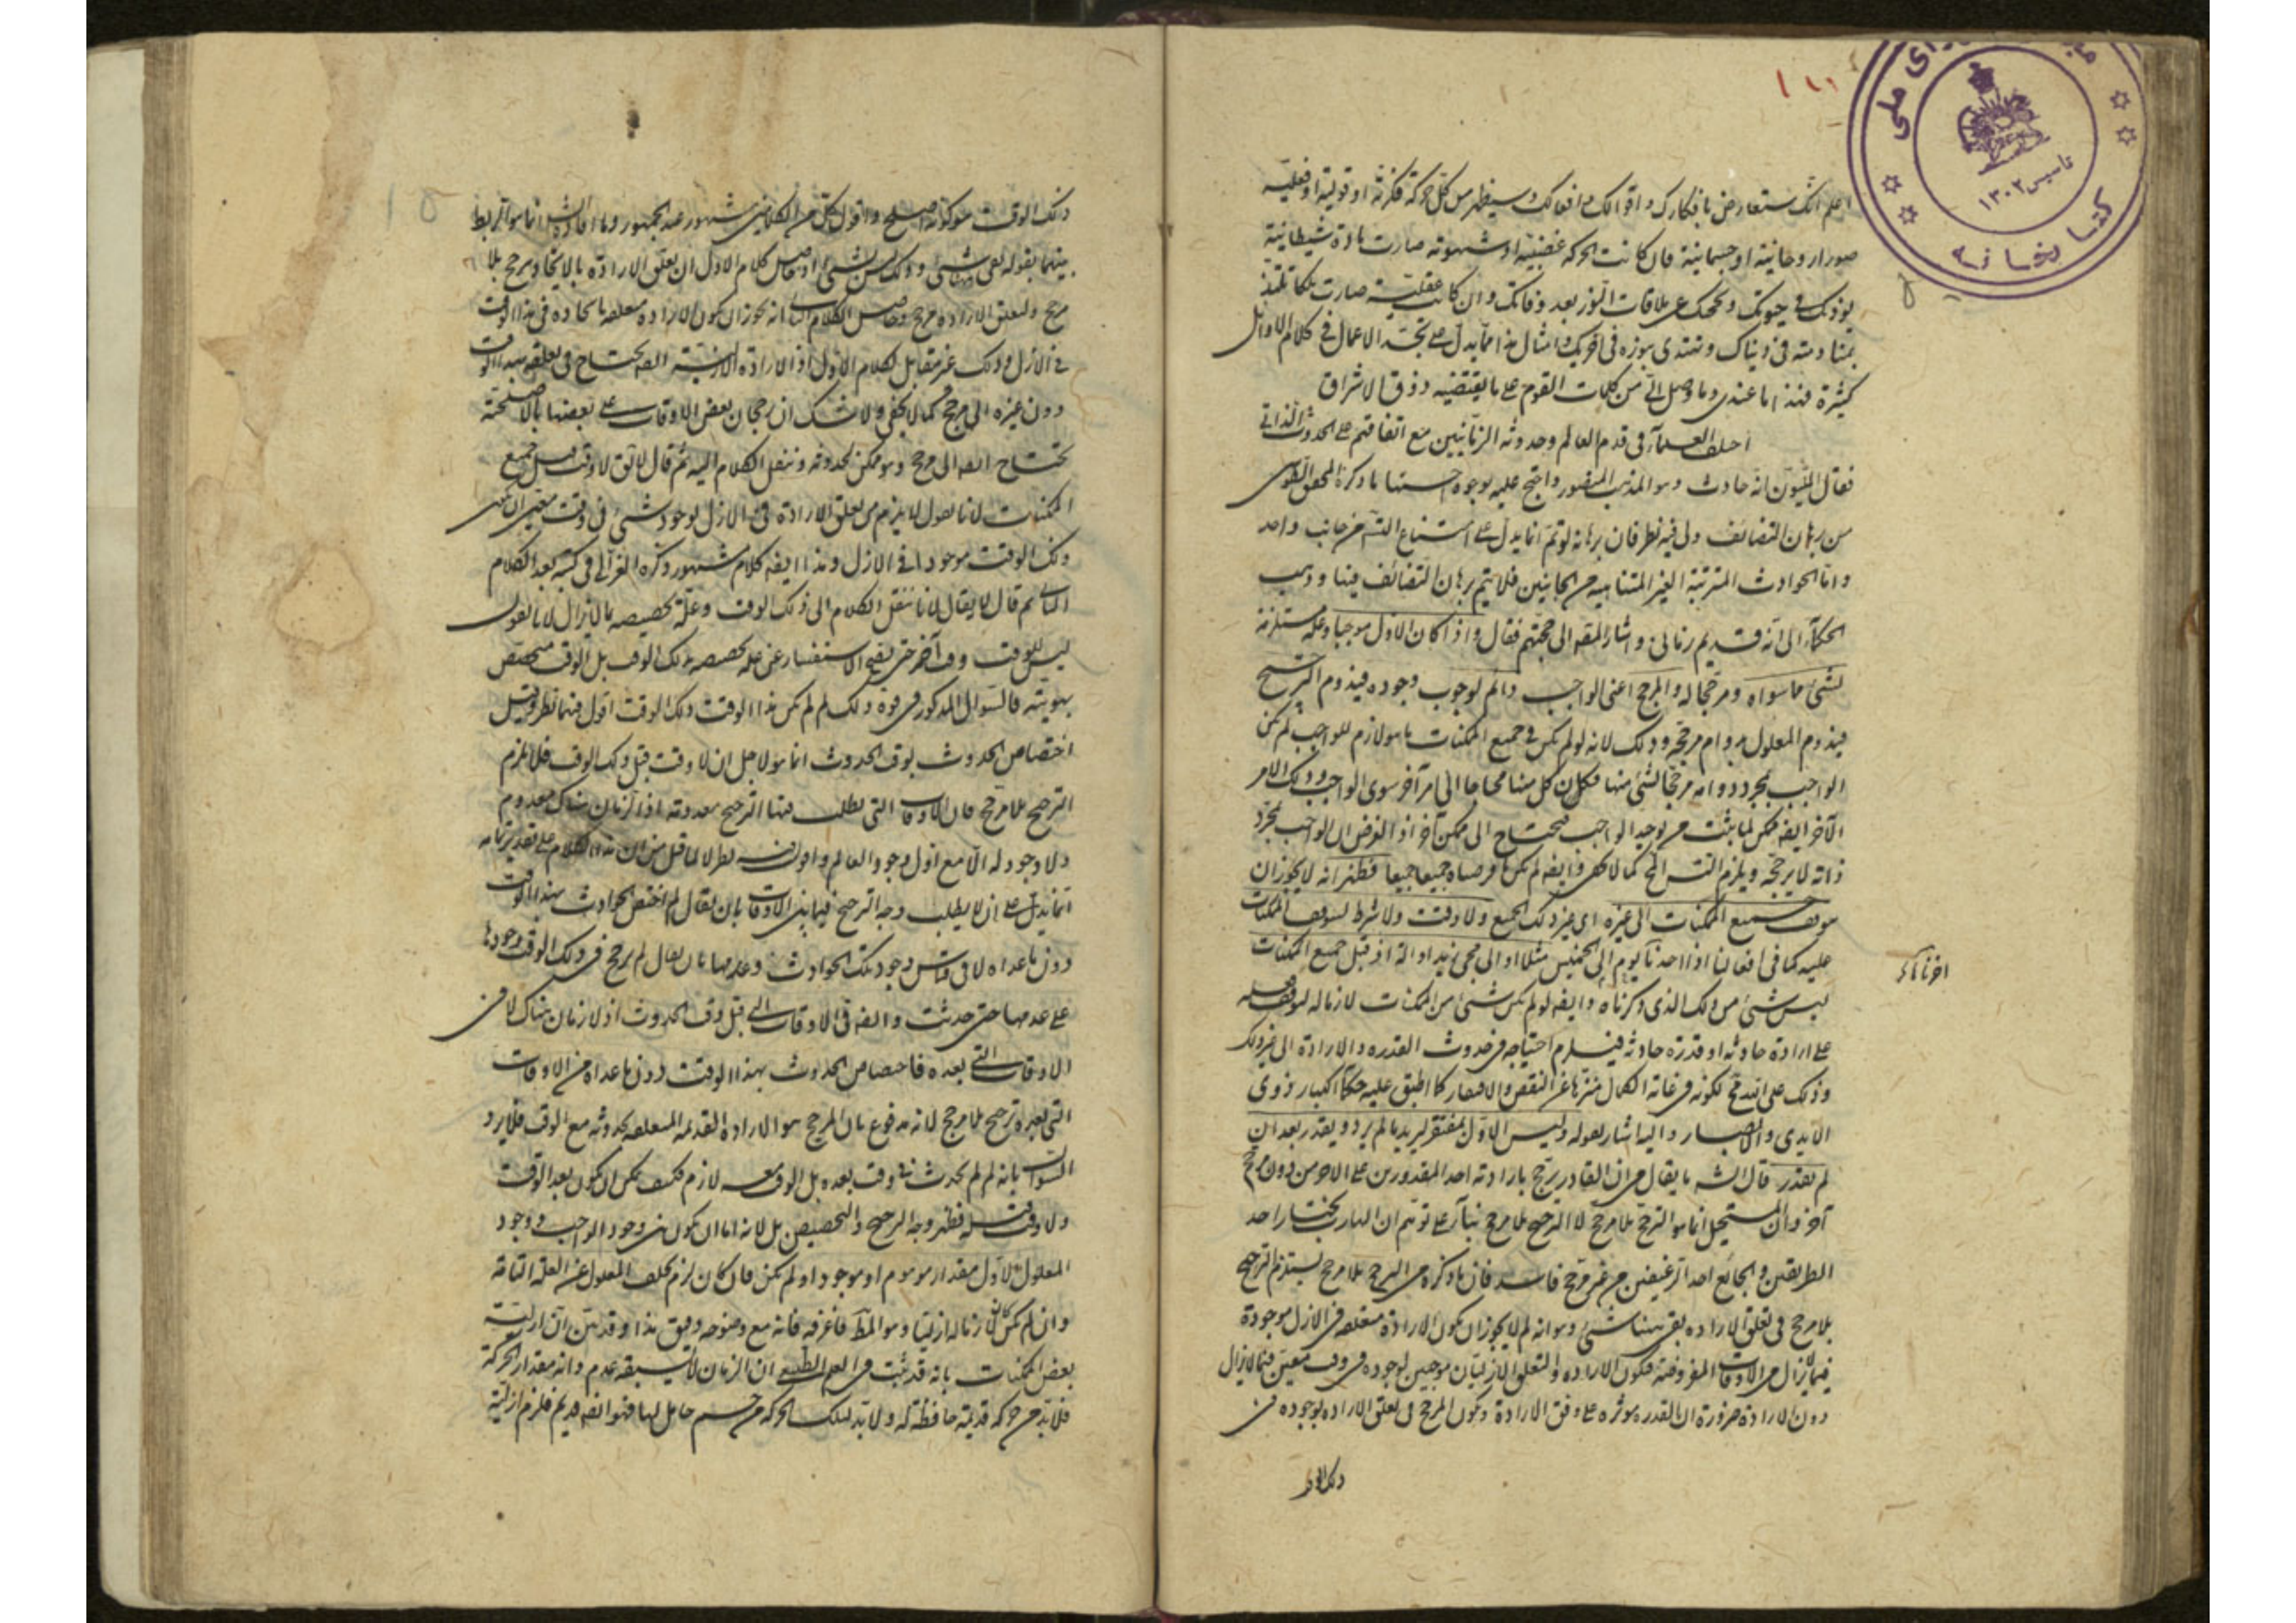 اعلم انك ستعارض بافكارك و اقوالك و افعالك و سيظهر من كل حركة فكرية او قولية او فعلية
صورا روحانية او جسمانية فان كانت الحركة غضبية او شهوية صارت مادة شيطانية
يؤذيك في حيوتك و يحجبك عن ملاقات النور بعد وفاتك و ان كانت عقلية صارت ملكا تلتذ
بمنادمته في دنياك و تهتدى بنوره في اخريك و امثال هذا مما يدل على تجسد الاعمال في كلام الاوائل
كثيرة فهذا ما عندى و ما وصل الى من كلمات القوم على ما يقتضيه ذوق الاشراق
اختلف العلماء في قدم العالم و حدوثه الزمانيين مع اتفاقهم على الحدوث الذاتى
فقال المليون انه حادث و هو المذهب المنصور و احتج عليه بوجوه احسنها ما ذكره المحقق الطوسى
من برهان التضائف و لى فيه نظر فان برهانه لو تم انما يدل على امتناع التس من جانب واحد
و اما الحوادث المترتبة الغير المتناهية من الجانبين فلا يتم برهان التضائف فيها و ذهب
الحكماء الى انه قديم زمانى و اشار المص الى حجتهم فقال و اذا كان الاول موجبا و علة مستلزمة
لشئ مما سواه و مرجحا له و المرجح اعنى الواجب دائم لوجوب وجوده فيدوم الترجيح
فيدوم المعلول بدوام مرجحه و ذلك لانه لو لم يكن في جميع الممكنات ما هو لازم للواجب لم يكن
الواجب بمجرد دوامه مرجحا لشئ منها فكان كل منها محتاجا الى امر آخر سوى الواجب و ذلك الامر
الآخر ايضه ممكن لما يثبت من توحيد الواجب فيحتاج الى ممكن آخر اذ الفرض ان الواجب بمجرد
ذاته لا يرجحه و يلزم التس المح كما لا يخفى و ايضه لم يكن ما فرضناه جميعا جميعا فظهر انه لا يجوز ان
يتوقف جميع الممكنات الى غيره اى غير ذلك الجميع و لا وقت و لا شرط ليتوقف الممكنات
عليه كما في افعالنا اذا اخرنا يوم الى الخميس مثلا او الى مجئ زيد او الة اذ قبل جميع الممكنات
ليس شئ من ذلك الذى ذكرناه و ايضه لو لم يكن شئ من الممكنات لازما له لتوقف فعله
على ارادة حادثة او قدرة حادثة فيلزم احتياجه في حدوث القدرة و الارادة الى غير ذلك
و ذلك على الله مح لكونه في غاية الكمال منزها عن النقص و الافتقار كما اطبق عليه حكماء الكبار ذوى
الايدى و الابصار و اليه اشار بقوله و ليس الاول بمفتقر ليريد ما لم يرد و يقدر بعد ان
لم يقدر قال الشه ما يقال من ان القادر يرجح بارادته احد المقدورين على الاخر من دون مرجح
آخر و ان المستحيل انما هو الترجح بلا مرجح لا الترجيح بلا مرجح بناء على توهم ان الهارب يختار احد
الطريقين و الجائع احد الرغيفين من غير مرجح فاسد فان ما ذكره من الترجيح بلا مرجح يستلزم الترجح
بلا مرجح في تعلق الارادة بقى ههنا شئ و هو انه لم لا يجوز ان يكون الارادة متعلقة في الازل بوجوده
فيما لا يزال من الاوقات المفروضة فيكون الارادة و التعلق الازليان موجبين لوجوده في وقت معين فيما لا يزال
دون الارادة ضرورة ان القدرة مؤثرة على وفق الارادة و يكون المرجح في تعلق الارادة بوجوده في
ذلك الوقت
ذلك الوقت هو كونه اصلح و اقول كل من الكلامين مشهور عند الجمهور و ما افاده الش انما هو الربط
بينهما بقوله بقى ههنا شئ و ذلك ليس بشئ اذ حاصل كلام الاول ان تعلق الارادة بالايجاد ترجح بلا
مرجح و لتعلق الارادة مرجح و حاصل الكلام الثانى انه يجوز ان يكون الارادة متعلقة بايجاده في هذا الوقت
في الازل و ذلك غير مقابل لكلام الاول اذ الارادة الازلية ايضه يحتاج في تعلقه بهذا الوقت
دون غيره الى مرجح كما لا يخفى و لا شك ان رجحان بعض الاوقات على بعضها بالاصلحية
يحتاج ايضه الى مرجح و هو ممكن لحدوثه و ننقل الكلام اليه ثم قال لا يق لا وقت قبل جميع
الممكنات لانا نقول لا يلزم من تعلق الارادة في الازل لوجود شئ في وقت معين ان يكون
ذلك الوقت موجودا في الازل و هذا ايضه كلام مشهور ذكره الغزالى في كتبه بعد الكلام
الثانى ثم قال لا يقال لانا ننقل الكلام الى ذلك الوقت و علة تخصيصه بما لا يزال لانا نقول
ليس للوقت وقت آخر حتى يصح الاستفسار عن علة تخصيصه بذلك الوقت بل الوقت متخصص
بهويته فالسؤال المذكور في قوة ذلك لم لم يكن هذا الوقت ذلك الوقت اقول فيهما نظر و قيل
اختصاص الحدوث بوقت الحدوث انما هو لاجل ان لا وقت قبل ذلك الوقت فلا يلزم
الترجيح بلا مرجح فان الاوقات التى يطلب فيها الترجيح معدومة اذ الزمان هناك معدوم
و لا وجود له الا مع اول وجود العالم و اقول فيه نظر لا لما قيل من ان هذا الكلام على تقدير تمامه
انما يدل على ان لا يطلب وجه الترجيح فيما بين الاوقات بان يقال لم اختص الحوادث بهذا الوقت
دون ما عداه لا في قياس وجود تلك الحوادث و عدمها بان يقال لم يرجح في ذلك الوقت وجودها
على عدمها حتى حدثت و ايضه في الاوقات التى قبل وقت الحدوث اذ لا زمان هناك لا في
الاوقات التى بعده فاختصاص الحدوث بهذا الوقت دون ما عداه من الاوقات
التى بعده ترجيح بلا مرجح لانه مدفوع بان المرجح هو الارادة القديمة المتعلقة بحدوثه مع الوقت فلا يرد
السؤال بانه لم لم يحدث في وقت بعده بل الوقت معه لازم فكيف يمكن ان يكون بعد الوقت
و لا وقت قبله فظهر وجه الترجيح و التخصيص بل لانه اما ان يكون بين وجود الواجب و وجود
المعلول الاول مقدار موهوم او موجود او لم يكن فان كان يلزم تخلف المعلول عن العلة التامة
و ان لم يكن كان لازما له ازليا و هو المط فاعرفه فانه مع وضوحه دقيق هذا و قد بين الش ازلية
بعض الممكنات بانه قد ثبت في العلم الطبيعى ان الزمان لا يسبقه عدم و انه مقدار الحركة
فلا بد من حركة قديمة حافظة له و لا بد لتلك الحركة من جسم حامل لها فهو ايضه قديم فلزم ازلية
تاسيس ۱۳۰۲
كتابخانه